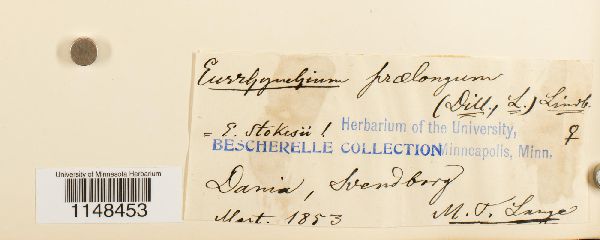 Eurrhynchium prælongum
(Dill., L.) Lindb.
= E. Stokesii !
Herbarium of the University,
♀
BESCHERELLE COLLECTION
Minneapolis, Minn.
University of Minnesota Herbarium
1148453
Dania, Svendborg
Mart. 1853
M. T. Lange